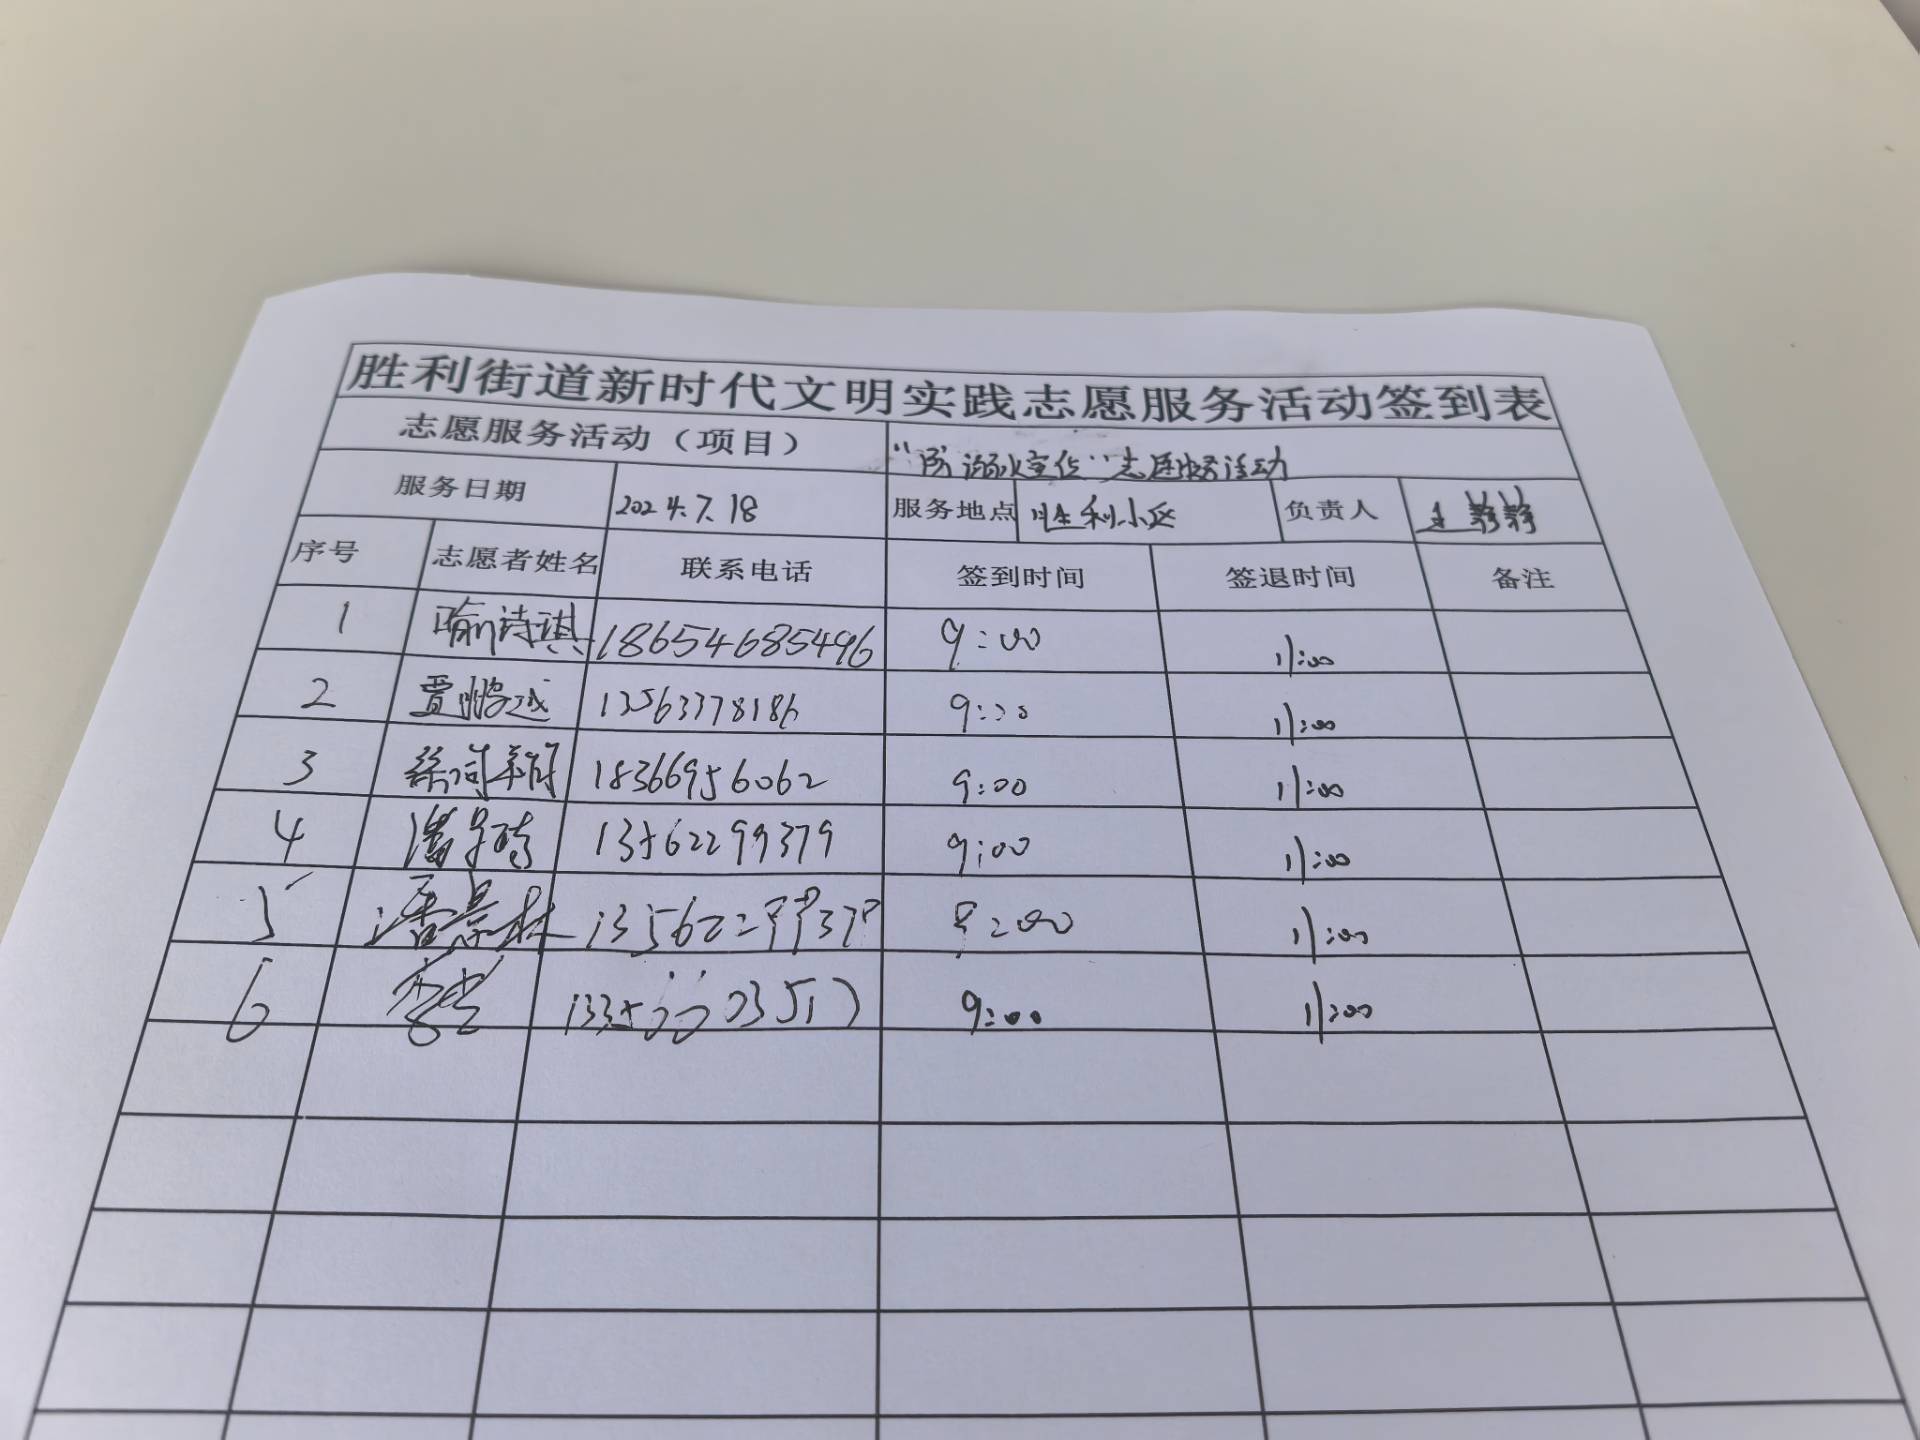 胜利街道新时代文明实践志愿服务活动签到表
志愿服务活动（项目） "防溺水宣传"志愿服务活动
服务日期 2024.7.18 服务地点 胜利小区 负责人 王静静
序号 志愿者姓名 联系电话 签到时间 签退时间 备注
1 喻诗琪 18654685496 9:00 11:00
2 贾鹏诚 13563378186 9:00 11:00
3 18366956062 9:00 11:00
4 潘 13562299379 9:00 11:00
5 潘景林 13562299379 9:00 11:00
6 9:00 11:00